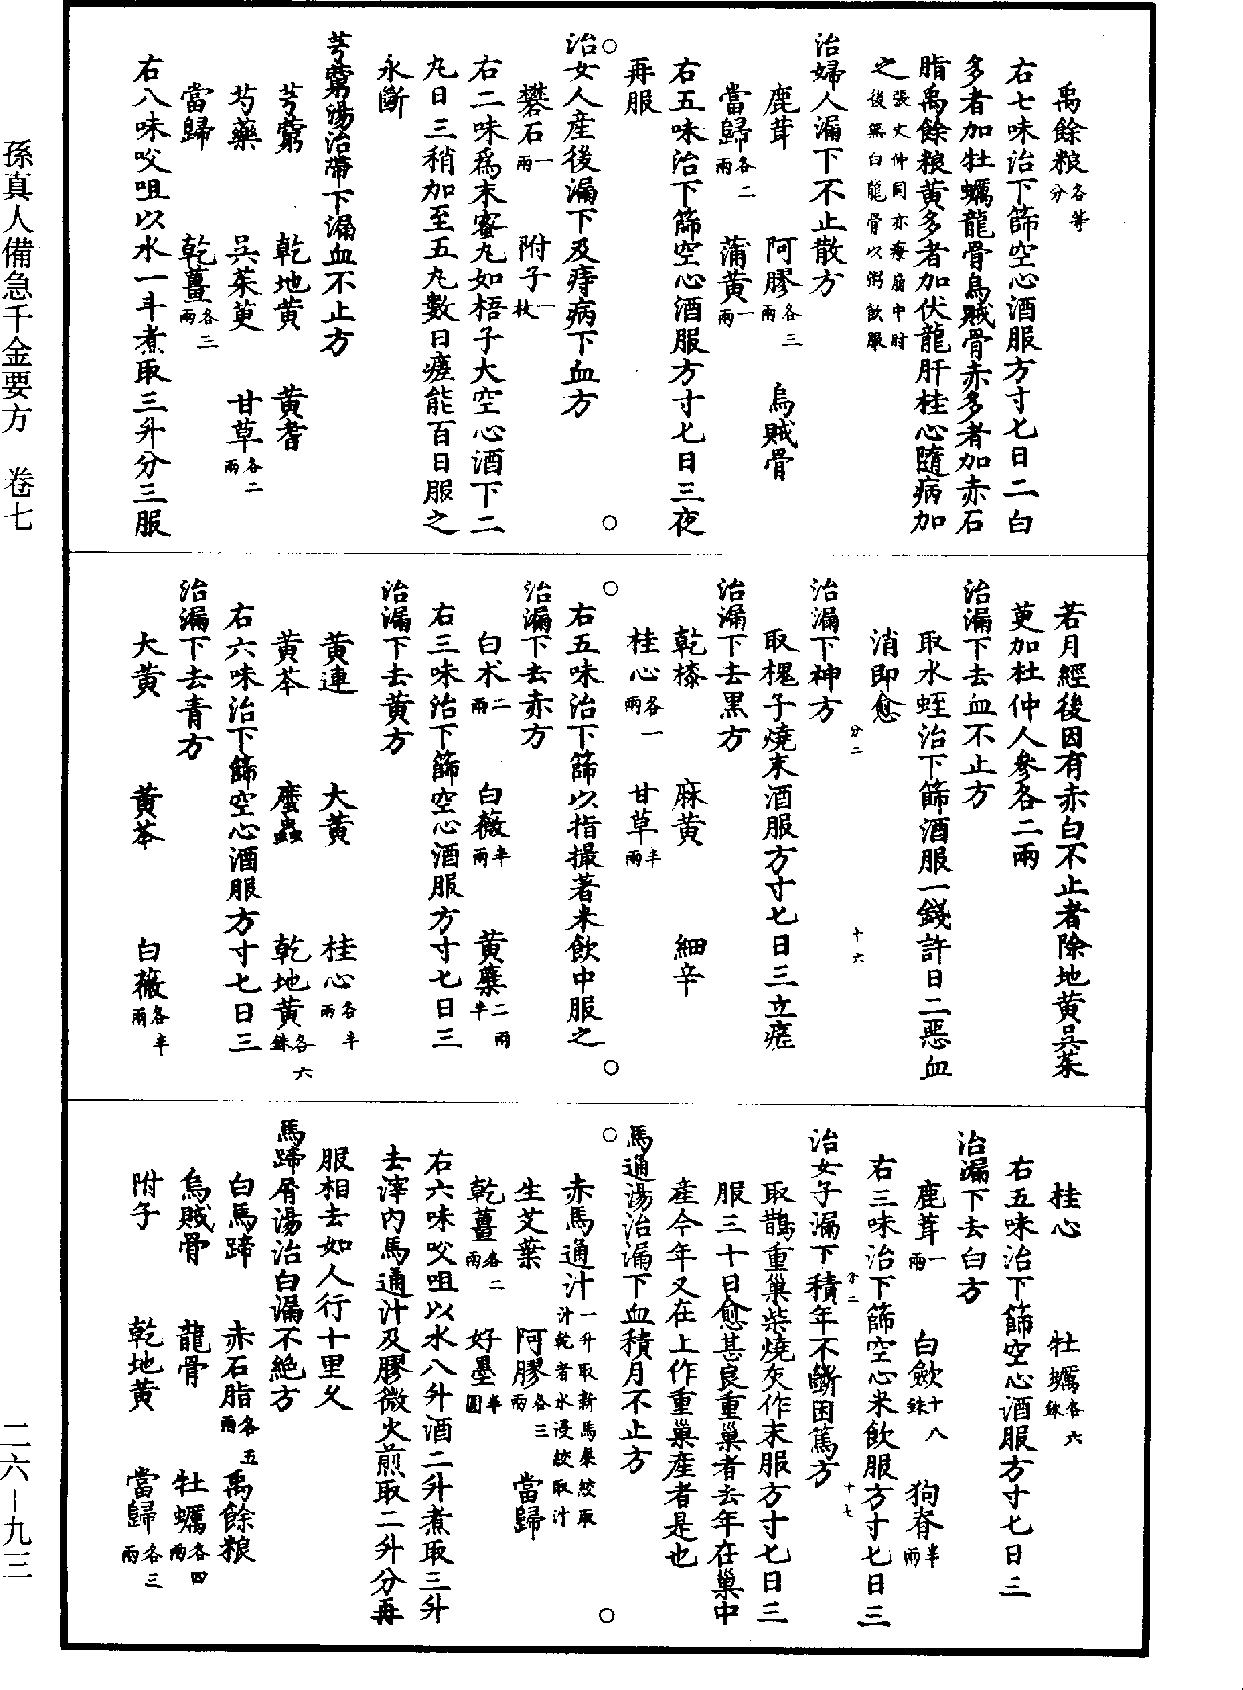 孫真人備急千金要方　卷七
禹餘粮各等分
右七味治下篩空心酒服方寸匕日二白
多者加牡蠣龍骨烏賊骨赤多者加赤石
脂禹餘粮黃多者加伏龍肝桂心隨病加
之張文仲同亦療崩中肘後無白龍骨以粥飲服
治婦人漏下不止散方
鹿茸　阿膠各三兩　烏賊骨
當歸各二兩　蒲黃一兩
右五味治下篩空心酒服方寸匕日三夜
再服
治女人産後漏下及痔病下血方
礬石一兩　附子一枚
右二味爲末蜜丸如梧子大空心酒下二
丸日三稍加至五丸數日瘥能百日服之
永斷
芎藭湯治帶下漏血不止方
芎藭　乾地黃　黃耆
芍藥　吳茱萸　甘草各二兩
當歸　乾薑各三兩
右八味㕮咀以水一斗煮取三升分三服
若月經後因有赤白不止者除地黃吳茱
萸加杜仲人參各二兩
治漏下去血不止方
取水蛭治下篩酒服一錢許日二惡血
消即愈
分二　十六
治漏下神方
取槐子燒末酒服方寸匕日三立瘥
治漏下去黑方
乾漆　麻黃　細辛
桂心各一兩　甘草半兩
右五味治下篩以指撮著米飲中服之
治漏下去赤方
白朮二兩　白薇半兩　黃蘗二兩半
右三味治下篩空心酒服方寸匕日三
治漏下去黃方
黃連　大黃　桂心各半兩
黃芩　䗪蟲　乾地黃各六銖
右六味治下篩空心酒服方寸匕日三
治漏下去青方
大黃　黃芩　白薇各半兩
桂心　牡蠣各六銖
右五味治下篩空心酒服方寸匕日三
治漏下去白方
鹿茸一兩　白歛十八銖　狗脊半兩
右三味治下篩空心米飲服方寸匕日三
分二　十七
治女子漏下積年不斷困篤方
取鵲重巢柴燒灰作末服方寸匕日三
服三十日愈甚良重巢者去年在巢中
産今年又在上作重巢産者是也
馬通湯治漏下血積月不止方
赤馬通汁一升取新馬屎絞取汁乾者水浸絞取汁
生艾葉　阿膠各三兩　當歸
乾薑各二兩　好墨半圓
右六味㕮咀以水八升酒二升煮取三升
去滓內馬通汁及膠微火煎取二升分再
服相去如人行十里久
馬蹄屑湯治白漏不絕方
白馬蹄　赤石脂各五兩　禹餘粮
烏賊骨　龍骨　牡蠣各四兩
附子　乾地黃　當歸各三兩
二六—九三